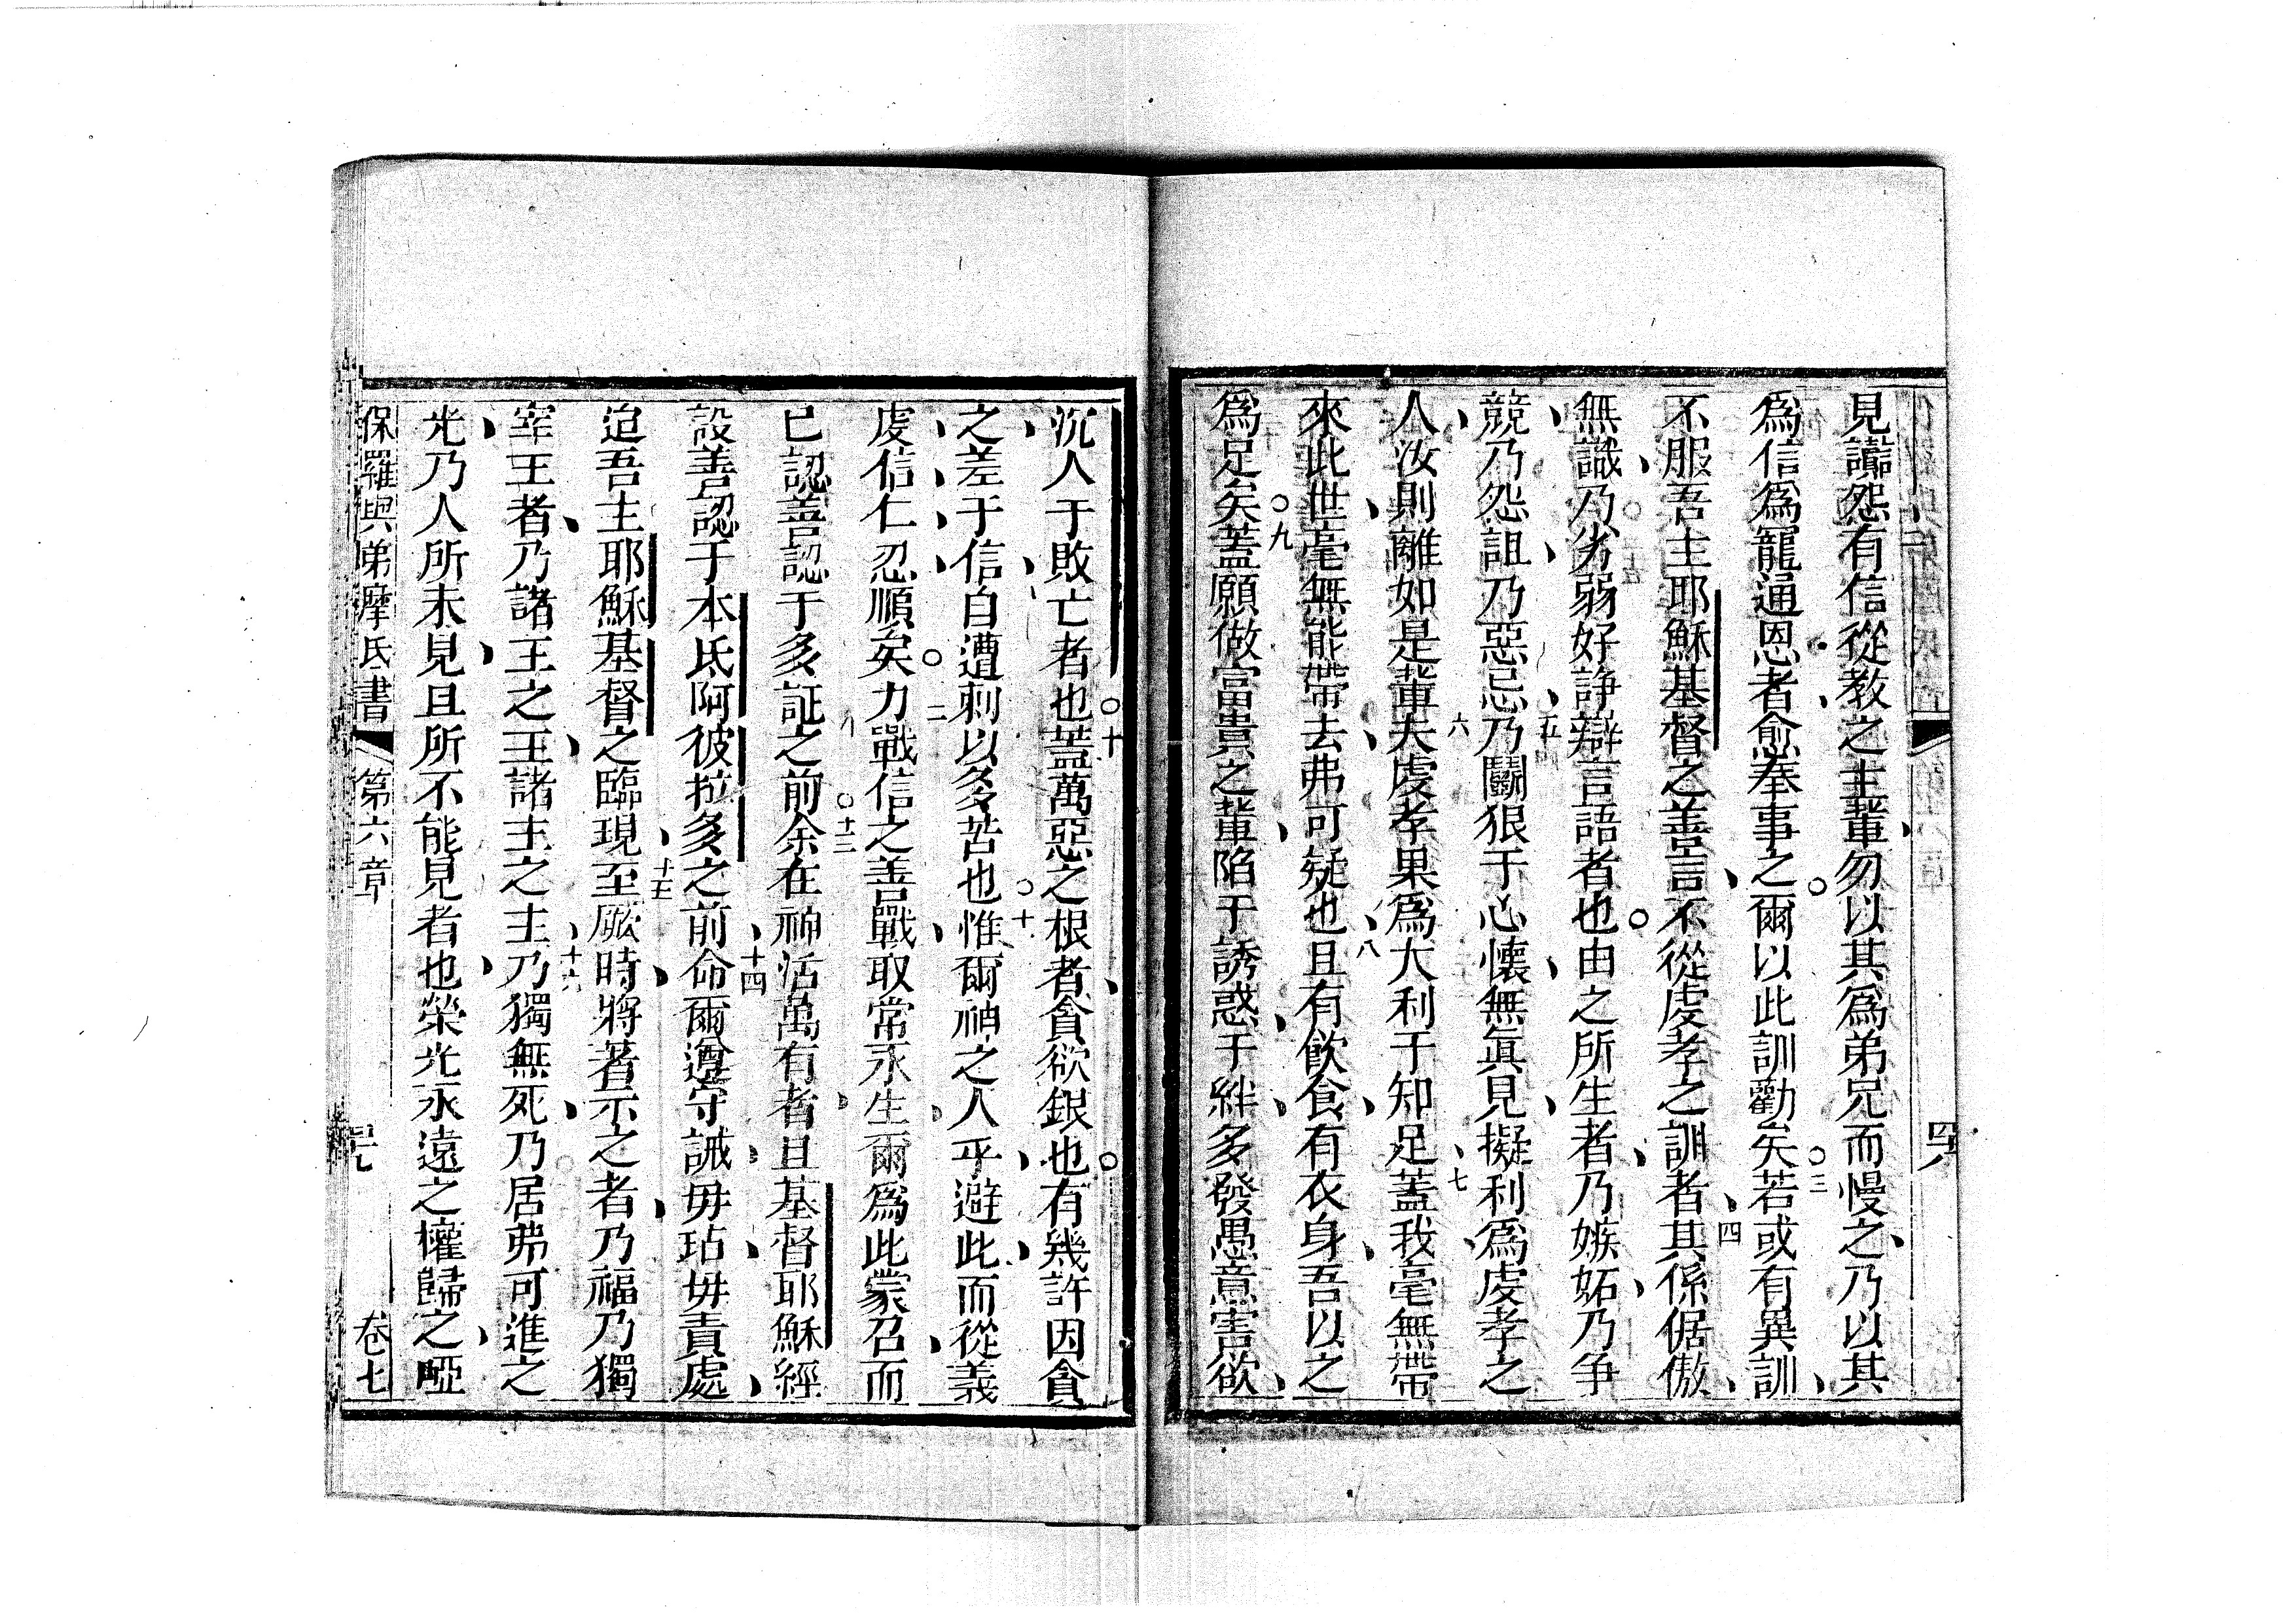 見讟怨有信從教之主輩勿以其爲弟兄而慢之乃以其
爲信爲寵通恩者愈奉事之爾以此訓勸矣三若或有異訓
不服吾主耶穌基督之善言不從虔孝之訓者四其係倨傲
無識乃劣弱好諍辯言語者也由之所生者乃嫉妬乃爭
競乃怨詛乃惡忌五乃鬬狠于心懷無眞見擬利爲虔孝之
人汝則離如是輩夫六虔孝果爲大利于知足七蓋我毫無帶
來此世毫無能帶去弗可疑也八且有飲食有衣身吾以之
爲足矣九蓋願做富貴之輩陷于誘惑于絆多發愚意害欲
沉人于敗亡者也十蓋萬惡之根者貪欲銀也有幾許因貪
之差于信自遭刺以多苦也十惟爾神之人乎避此而從義
虔信仁忍順矣二力戰信之善戰取常永生爾爲此蒙召而
已認善認于多証之前十三余在神活萬有者且基督耶穌經
設善認于本氐阿彼拉多之前十四命爾遵守誡毋玷毋責處
迨吾主耶穌基督之臨現十五至厥時將著示之者乃福乃獨
宰王者乃諸王之王諸主之主十六乃獨無死乃居弗可進之
光乃人所未見且所不能見者也榮光永遠之權歸之啞
保羅與弟摩氐書 第六章 卷七